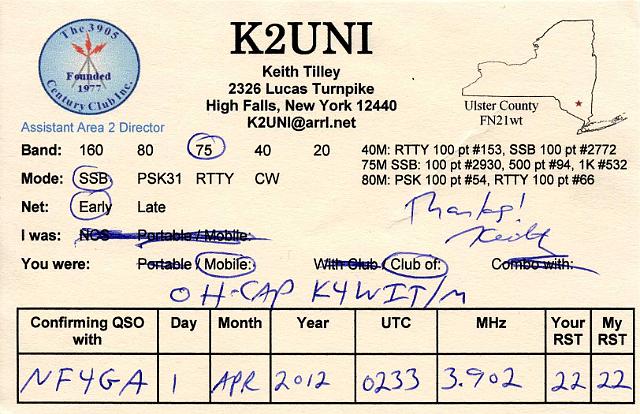 The 3905
Founded
1977
Century Club Inc.
K2UNI
Keith Tilley
2326 Lucas Turnpike
High Falls, New York 12440
K2UNI@arrl.net
Ulster County
FN21wt
Assistant Area 2 Director
Band: 160 80 75 40 20
40M: RTTY 100 pt #153, SSB 100 pt #2772
75M SSB: 100 pt #2930, 500 pt #94, 1K #532
80M: PSK 100 pt #54, RTTY 100 pt #66
Mode: SSB PSK31 RTTY CW
Net: Early Late
Thanks!
Keith
I was: NCS Portable / Mobile:
You were: Portable / Mobile: With Club / Club of: Combo with:
OH-CAP K4WIT/M
Confirming QSO with Day Month Year UTC MHz Your RST My RST
NF4GA 1 APR 2012 0233 3.902 22 22